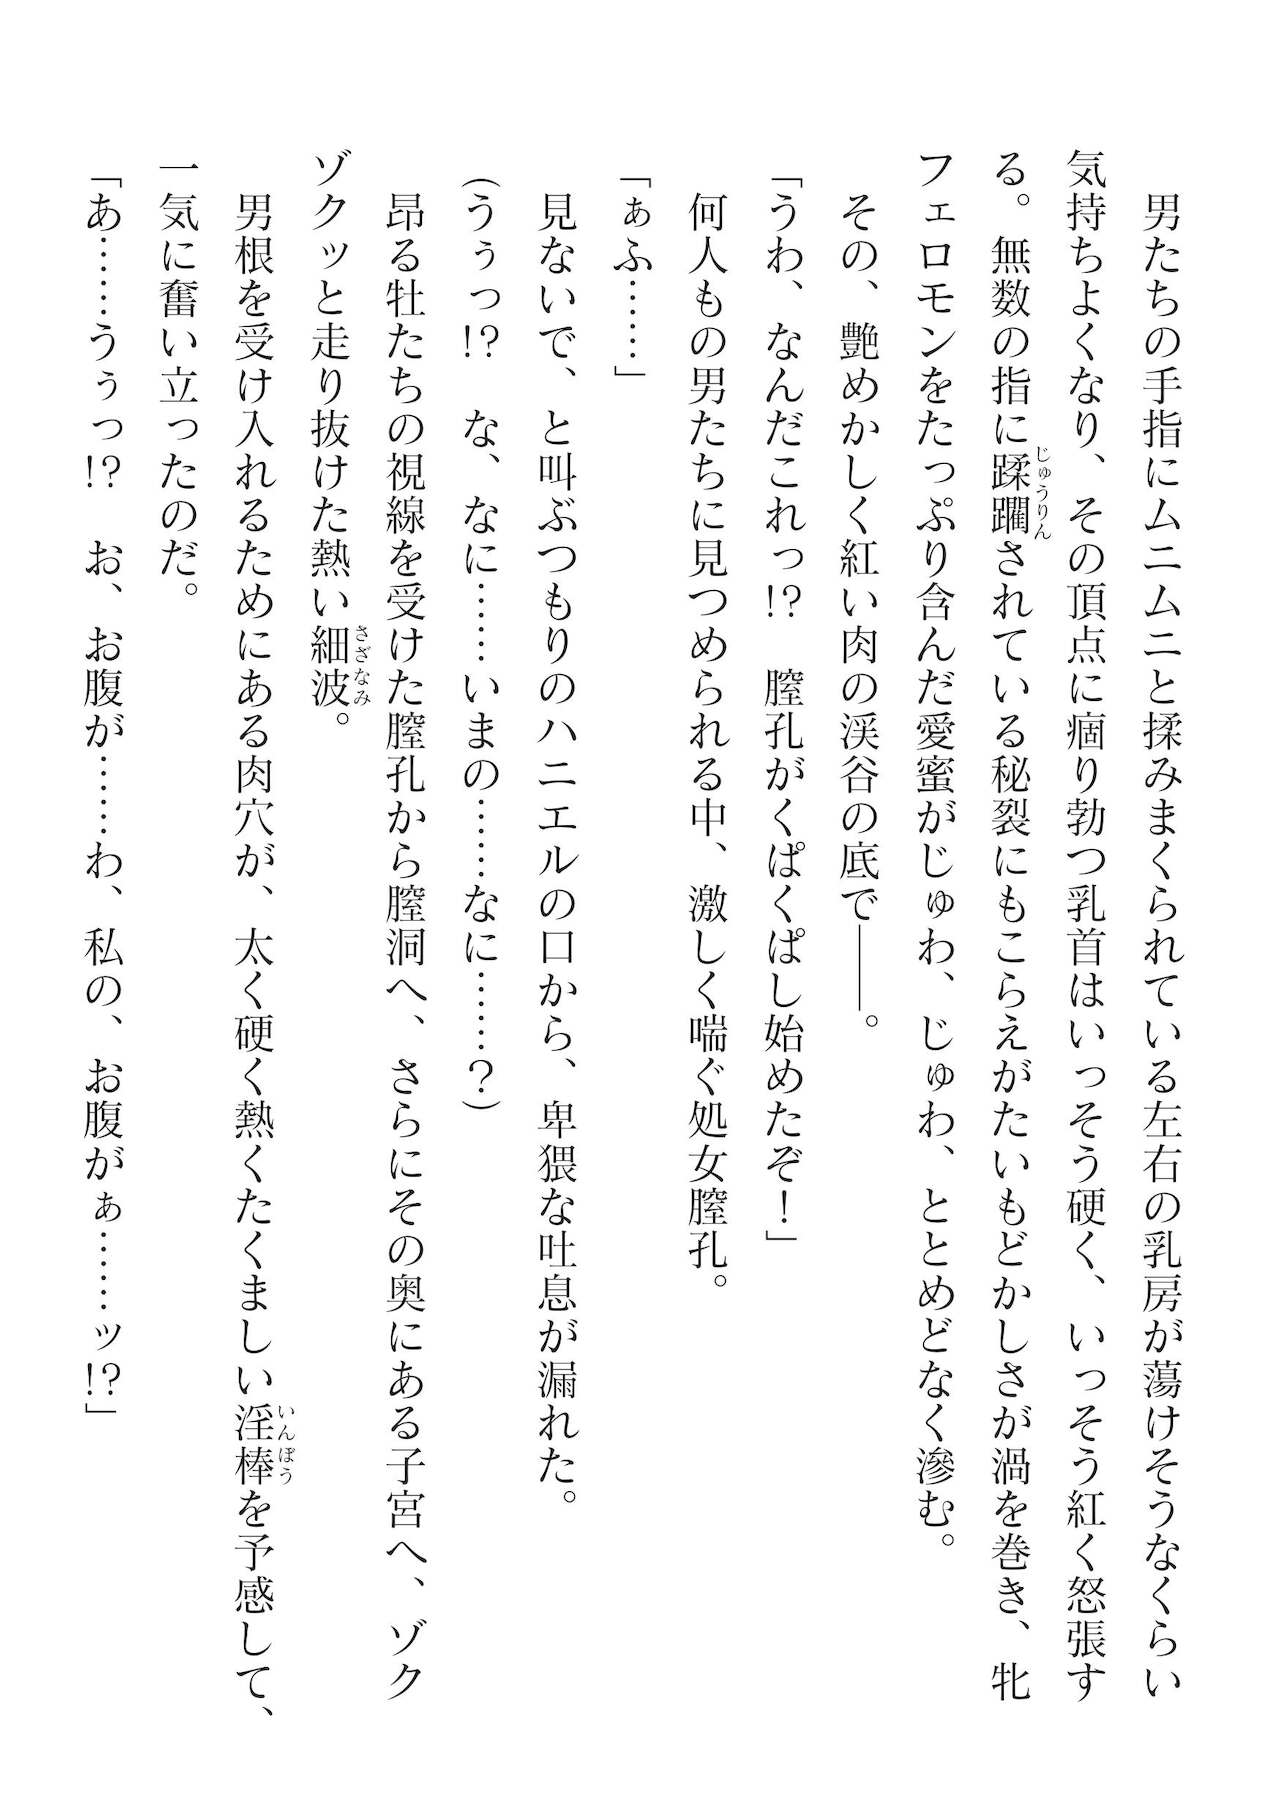 男たちの手指にムニムニと揉みまくられている左右の乳房が蕩けそうなくらい
気持ちよくなり、その頂点に痼り勃つ乳首はいっそう硬く、いっそう紅く怒張す
じゅうりん
る。無数の指に蹂躙されている秘裂にもこらえがたいもどかしさが渦を巻き、牝
フェロモンをたっぷり含んだ愛蜜がじゅわ、じゅわ、ととめどなく滲む。
その、艶めかしく紅い肉の渓谷の底で――。
「うわ、なんだこれっ!?　膣孔がくぱくぱし始めたぞ！」
何人もの男たちに見つめられる中、激しく喘ぐ処女膣孔。
「ぁふ……」
見ないで、と叫ぶつもりのハニエルの口から、卑猥な吐息が漏れた。
(うぅっ!?　な、なに……いまの……なに……？)
昂る牡たちの視線を受けた膣孔から膣洞へ、さらにその奥にある子宮へ、ゾク
さざなみ
ゾクッと走り抜けた熱い細波。
いんぼう
男根を受け入れるためにある肉穴が、太く硬く熱くたくましい淫棒を予感して、
一気に奮い立ったのだ。
「あ……うぅっ!?　お、お腹が……わ、私の、お腹がぁ……ッ!?」